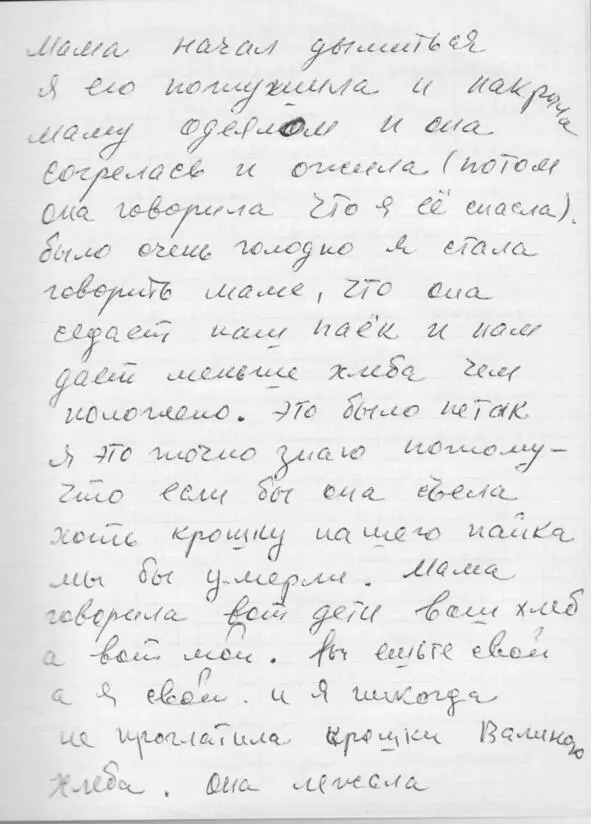 мама начал дымиться
я его потушила и накрыла
маму одеялом и она
согрелась и ожила (потом
она говорила что я её спасла).
было очень голодно я стала
говорить маме, что она
седает наш паёк и нам
дает меньше хлеба чем
положено. Это было нетак
я это точно знаю потому-
что если бы она съела
хоть крошку нашего пайка
мы бы умерли. Мама
говорила вот дети ваш хлеб
а вот мой. Вы ешьте свой
а я свой. и я никогда
не проглатила крошки Валиного
хлеба. Она лежала